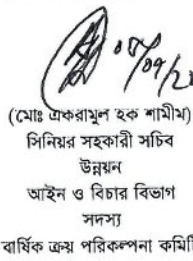 ০৮/০৭/২
(মোঃ একরামুল হক শামীম)
সিনিয়র সহকারী সচিব
উন্নয়ন
আইন ও বিচার বিভাগ
সদস্য
বার্ষিক ক্রয় পরিকল্পনা কমিটি